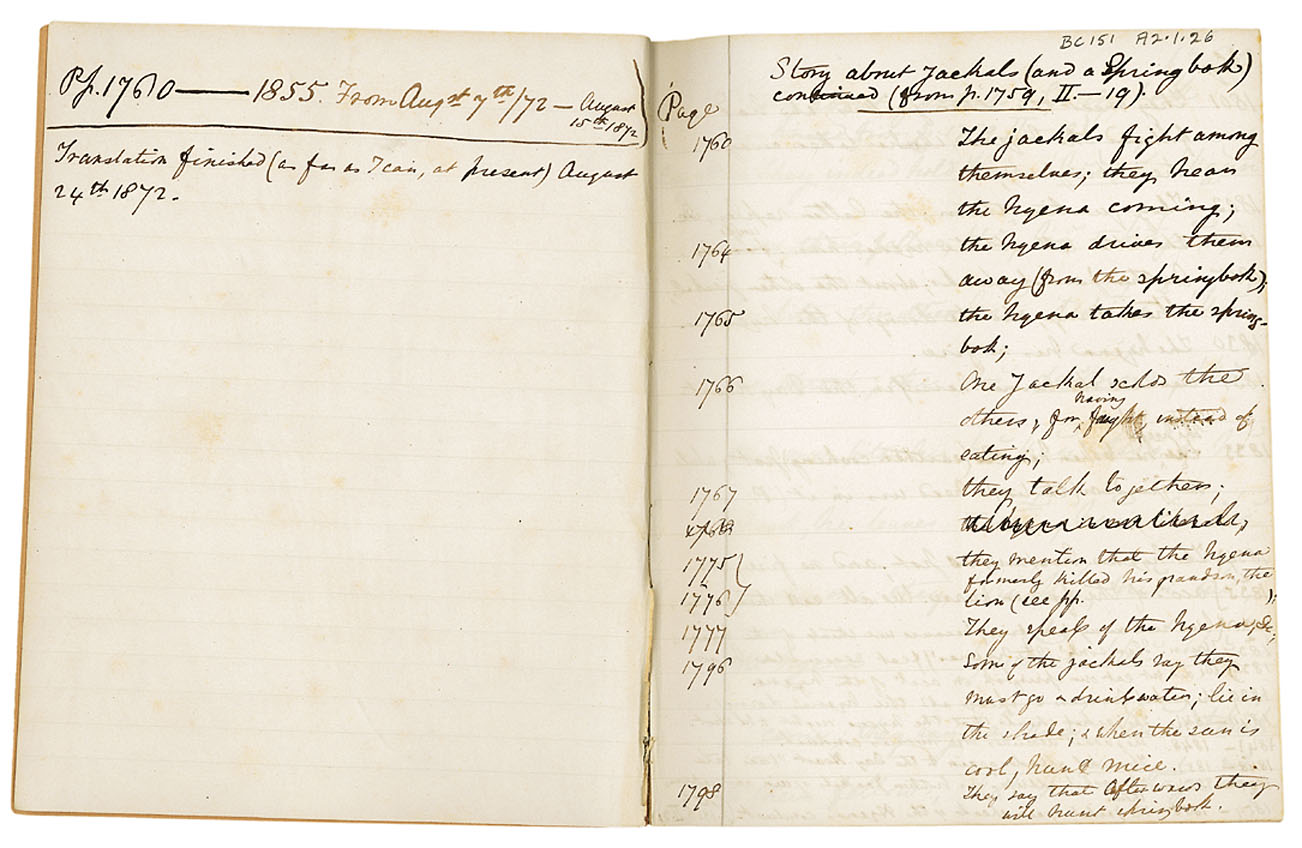 Pp. 1760 — 1855. From Augst 7th/72 — August
15th 1872
Translation finished (as far as I can, at present) August
24th 1872.
BC 151 A2.1.26
Story about Jackals (and a Springbok)
continued (from p. 1759, II.—19).
Page
1760 The jackals fight among
themselves; they hear
the hyena coming;
1764 the hyena drives them
away (from the springbok);
1765 the hyena takes the spring-
bok;
1766 One Jackal scolds the
others, for having fought, instead of
eating;
1767 they talk together;
1775 they mention that the hyena
formerly killed his grandson, the
1776 lion (see pp. );
1777 They speak of the hyena, &c;
1796 Some of the jackals say they
must go & drink water; lie in
the shade; & when the sun is
cool, hunt mice.
1798 They say that afterwards they
will hunt springbok.